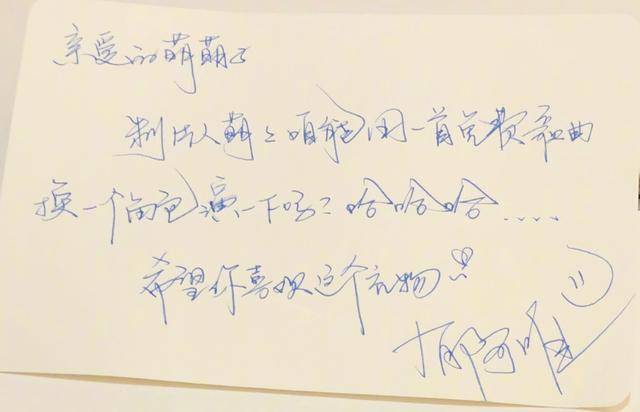 亲爱的萌萌子
制片人萌萌咱能用一首免费歌曲
换一个角色演一下吗？哈哈哈....
希望你喜欢这个礼物
郁可唯